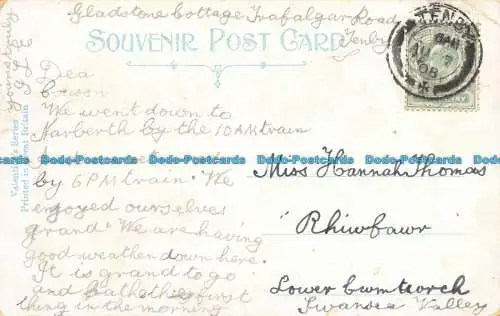 Gladstone Cottage Trafalgar Road
Tenby
SOUVENIR POST CARD
Dea
We went down to
Narberth by the 10 AM train
by 6 PM train. We
enjoyed ourselves
grand. We are having
good weather down here.
It is grand to go
and bathe the first
thing in the morning
yours truly
Valentine's Series
Printed in Great Britain
TENBY
08
Miss Hannah Thomas
Rhiwfawr
Lower Cwmtwrch
Swansea Valley
Dodo-Postcards Dodo-Postcards Dodo-Postcards Dodo-Postcards Dodo-Postcards